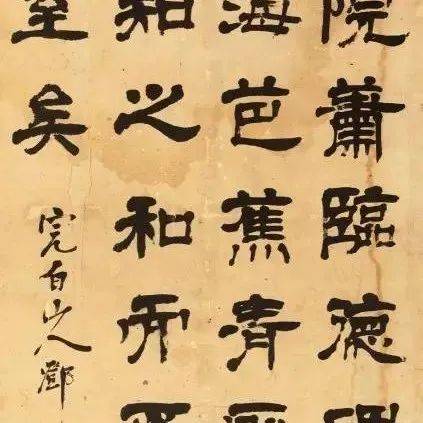 院蕭臨德
海芭蕉青
之和而
至矣
完白山人鄧